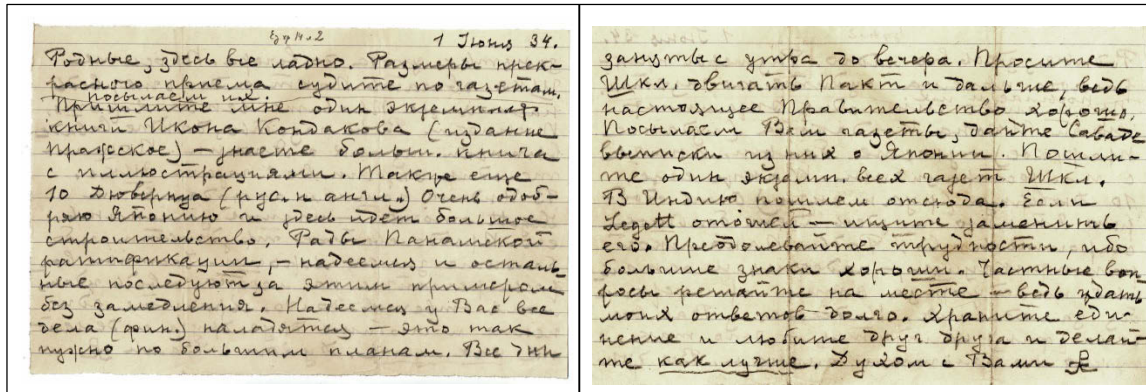 1 Июня 34.
Родные, здесь все ладно. Размеры прек-
расного приема судите по газетам.
посылаем их.
Пришлите мне один экземпляр
книги Икона Кондакова (издание
пражское) — знаете больш. книга
с иллюстрациями. Также еще
10 Дювернуа (рус. и англ.) Очень одоб-
ряю Японию и здесь идет большое
строительство. Рады Панамской
ратификации, — надеемся и осталь-
ные последуют за этим примером
без замедления. Надеемся у Вас все
дела (фин.) наладятся — это так
нужно по большим планам. Все дни
заняты с утра до вечера. Просите
Шкл. двигать Пакт и дальше, ведь
настоящее Правительство хорошо.
Посылаем Вам газеты, дайте Савадѣ
выписки из них о Японии. Пошли-
те один экземп. всех газет Шкл.
В Индию пошлем отсюда. Если
Legett отошел — ищите заменить
его. Преодолевайте трудности, ибо
большие знаки хороши. Частные воп-
росы решайте на месте — ведь ждать
моих ответов долго. Храните еди-
нение и любите друг друга и делай-
те как лучше. Духом с Вами